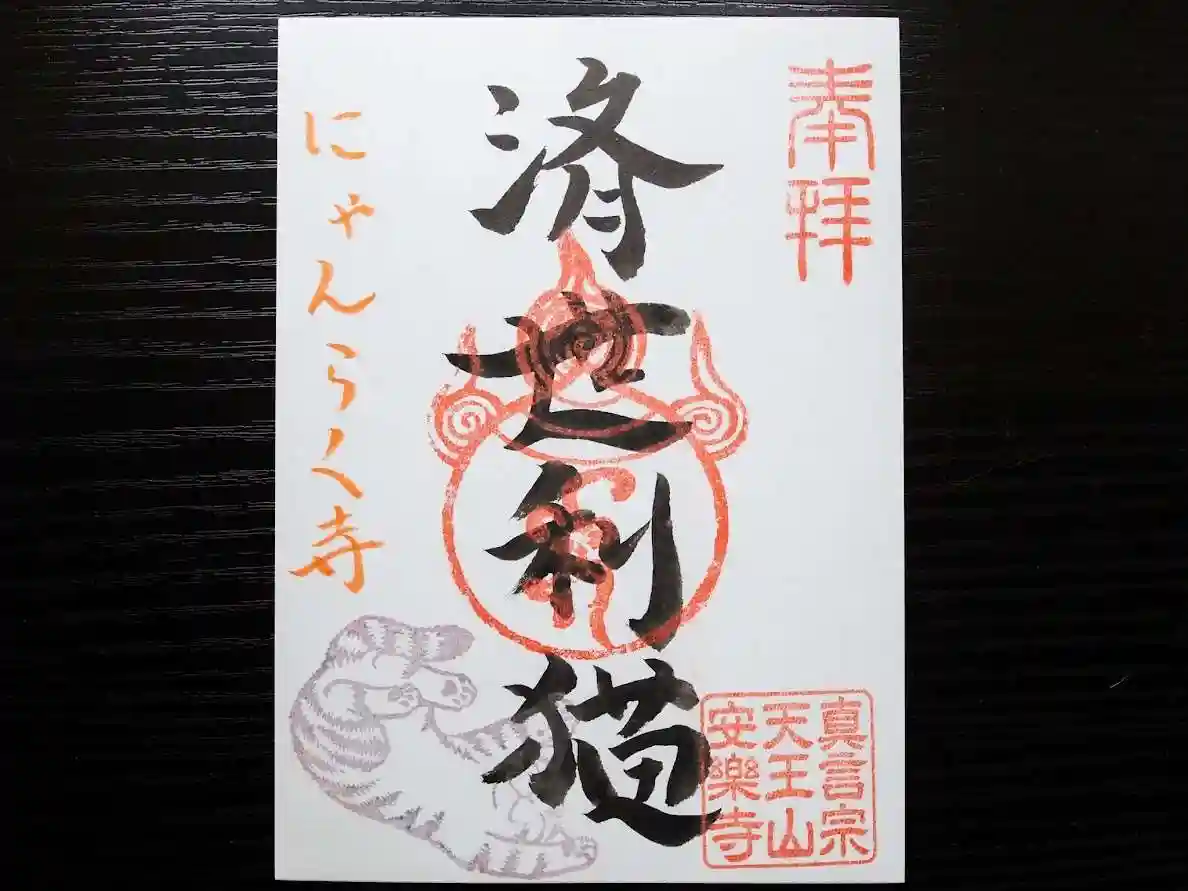 奉拝
済世利猫
真言宗
天王山
安樂寺
にゃんらく寺